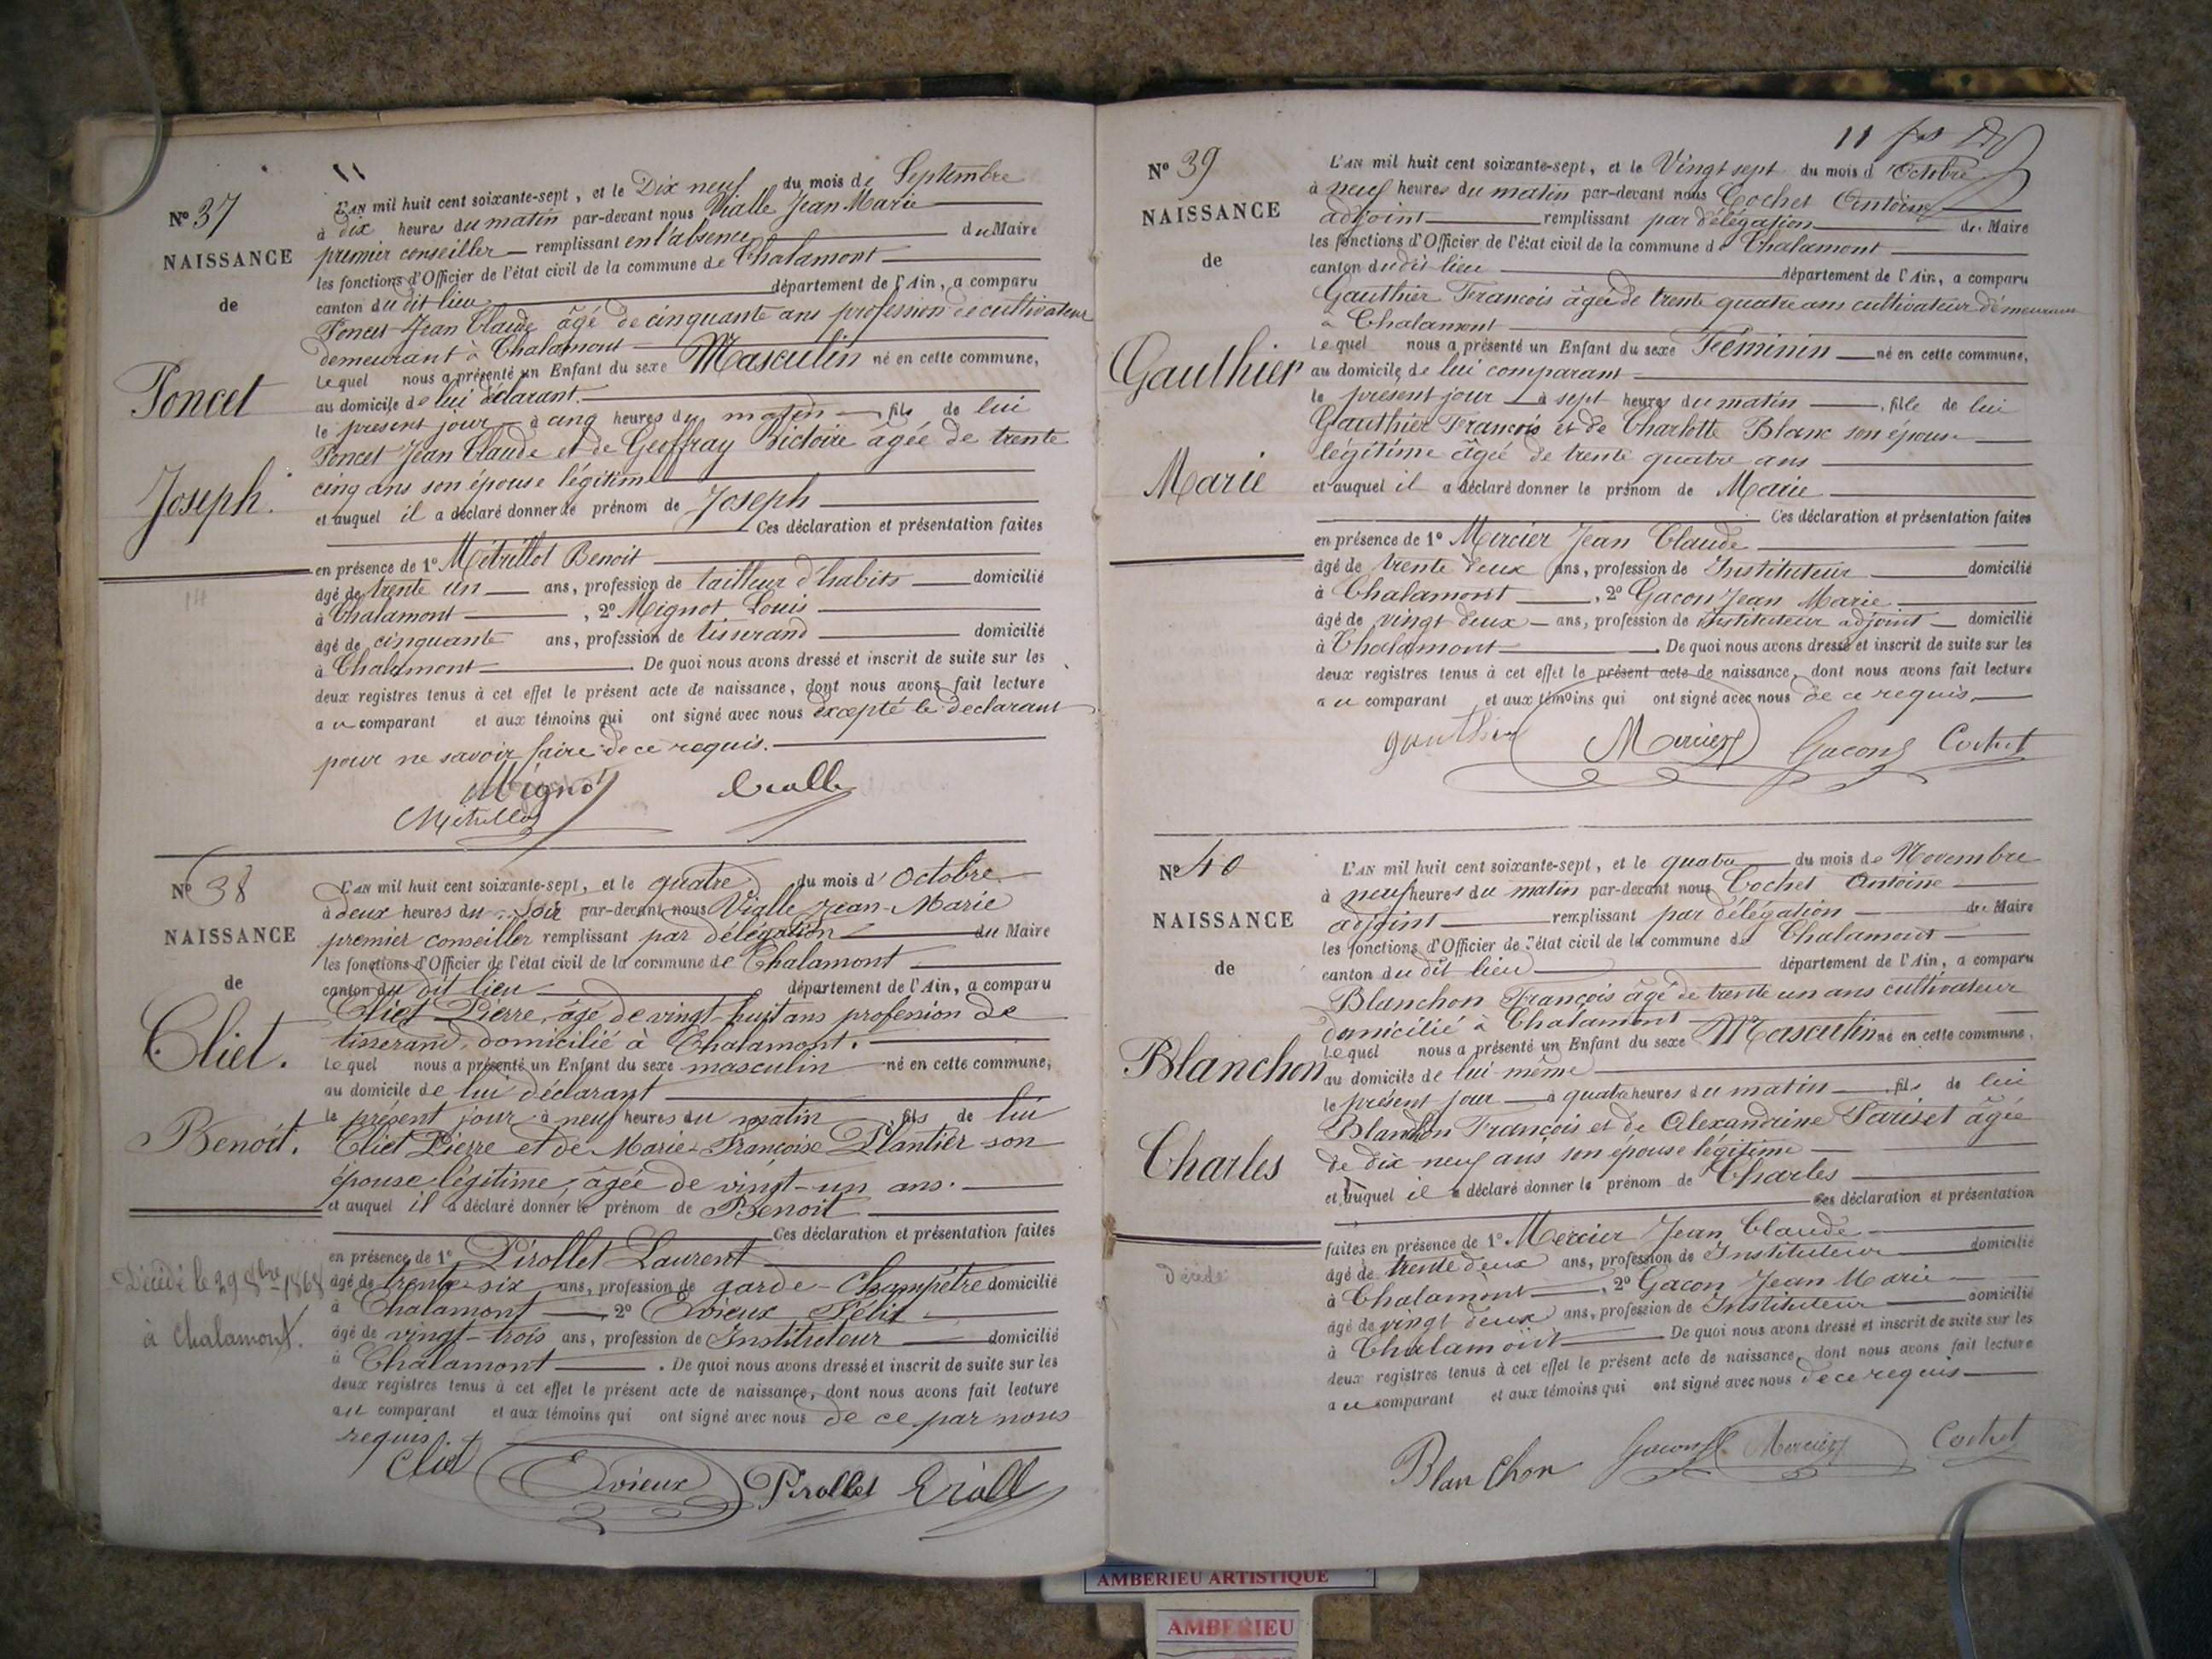 11
N° 37
NAISSANCE
de
Poncet
Joseph.
L'AN mil huit cent soixante-sept, et le Dix neuf du mois de Septembre
à dix heures du matin par-devant nous Vialle Jean Marie
premier conseiller remplissant en l'absence du Maire
les fonctions d'Officier de l'état civil de la commune de Chalamont
canton du dit lieu département de l'Ain, a comparu
Poncet Jean Claude âgé de cinquante ans profession de cultivateur
demeurant à Chalamont
Lequel nous a présenté un Enfant du sexe Masculin né en cette commune,
au domicile de lui déclarant.
le présent jour à cinq heures du matin fils de lui
Poncet Jean Claude et de Geoffray Victoire âgée de trente
cinq ans son épouse légitime
et auquel il a déclaré donner le prénom de Joseph
Ces déclaration et présentation faites
en présence de 1° Métrillot Benoit
âgé de trente un ans, profession de tailleur d'habits domicilié
à Chalamont, 2° Mignot Louis
âgé de cinquante ans, profession de tisserand domicilié
à Chalamont. De quoi nous avons dressé et inscrit de suite sur les
deux registres tenus à cet effet le présent acte de naissance, dont nous avons fait lecture
au comparant et aux témoins qui ont signé avec nous excepté le déclarant
pour ne savoir faire de ce requis.
Mignot Vialle
Métrillot
N° 38
NAISSANCE
de
Cliet.
Benoit.
Décédé le 29 8bre 1868
à Chalamont.
L'AN mil huit cent soixante-sept, et le quatre du mois d'Octobre
à deux heures du Soir par-devant nous Vialle Jean-Marie
premier conseiller remplissant par délégation du Maire
les fonctions d'Officier de l'état civil de la commune de Chalamont
canton du dit lieu département de l'Ain, a comparu
Cliet Pierre, âgé de vingt-huit ans profession de
tisserand, domicilié à Chalamont.
Lequel nous a présenté un Enfant du sexe masculin né en cette commune,
au domicile de lui déclarant
le présent jour à neuf heures du matin fils de lui
Cliet Pierre et de Marie-Françoise Plantier son
épouse légitime, âgée de vingt-un ans.
et auquel il a déclaré donner le prénom de Benoit
Ces déclaration et présentation faites
en présence de 1° Pirollet Laurent
âgé de trente-six ans, profession de garde-Champêtre domicilié
à Chalamont, 2° Evieux Félix
âgé de vingt-trois ans, profession de Instituteur domicilié
à Chalamont. De quoi nous avons dressé et inscrit de suite sur les
deux registres tenus à cet effet le présent acte de naissance, dont nous avons fait lecture
au comparant et aux témoins qui ont signé avec nous de ce par nous
requis.
Cliet Evieux Pirollet Vialle
11
N° 39
NAISSANCE
de
Gauthier
Marie
L'AN mil huit cent soixante-sept, et le Vingt sept du mois d'Octobre
à neuf heures du matin par-devant nous Cochet Antoine
adjoint remplissant par délégation du Maire
les fonctions d'Officier de l'état civil de la commune de Chalamont
canton du dit lieu département de l'Ain, a comparu
Gauthier François âgé de trente quatre ans cultivateur demeurant
à Chalamont
Lequel nous a présenté un Enfant du sexe Féminin né en cette commune,
au domicile de lui comparant
le présent jour à sept heures du matin, fille de lui
Gauthier François et de Charlotte Blanc son épouse
légitime âgée de trente quatre ans
et auquel il a déclaré donner le prénom de Marie
Ces déclaration et présentation faites
en présence de 1° Mercier Jean Claude
âgé de trente deux ans, profession de Instituteur domicilié
à Chalamont, 2° Gacon Jean Marie
âgé de vingt deux ans, profession de Instituteur adjoint domicilié
à Chalamont. De quoi nous avons dressé et inscrit de suite sur les
deux registres tenus à cet effet le présent acte de naissance, dont nous avons fait lecture
au comparant et aux témoins qui ont signé avec nous de ce requis.
gauthier Mercier Gacon Cochet
N° 40
NAISSANCE
de
Blanchon
Charles
Décédé
L'AN mil huit cent soixante-sept, et le quatre du mois de Novembre
à neuf heures du matin par-devant nous Cochet Antoine
adjoint remplissant par délégation du Maire
les fonctions d'Officier de l'état civil de la commune de Chalamont
canton du dit lieu département de l'Ain, a comparu
Blanchon François âgé de trente un ans cultivateur
domicilié à Chalamont
Lequel nous a présenté un Enfant du sexe Masculin né en cette commune,
au domicile de lui même
le présent jour à quatre heures du matin fils de lui
Blanchon François et de Alexandrine Pariset âgée
de dix neuf ans son épouse légitime
et auquel il a déclaré donner le prénom de Charles
Ces déclaration et présentation
faites en présence de 1° Mercier Jean Claude
âgé de trente deux ans, profession de Instituteur domicilié
à Chalamont, 2° Gacon Jean Marie
âgé de vingt deux ans, profession de Instituteur domicilié
à Chalamont. De quoi nous avons dressé et inscrit de suite sur les
deux registres tenus à cet effet le présent acte de naissance, dont nous avons fait lecture
au comparant et aux témoins qui ont signé avec nous de ce requis
Blanchon Gacon Mercier Cochet
AMBERIEU ARTISTIQUE
AMBERIEU